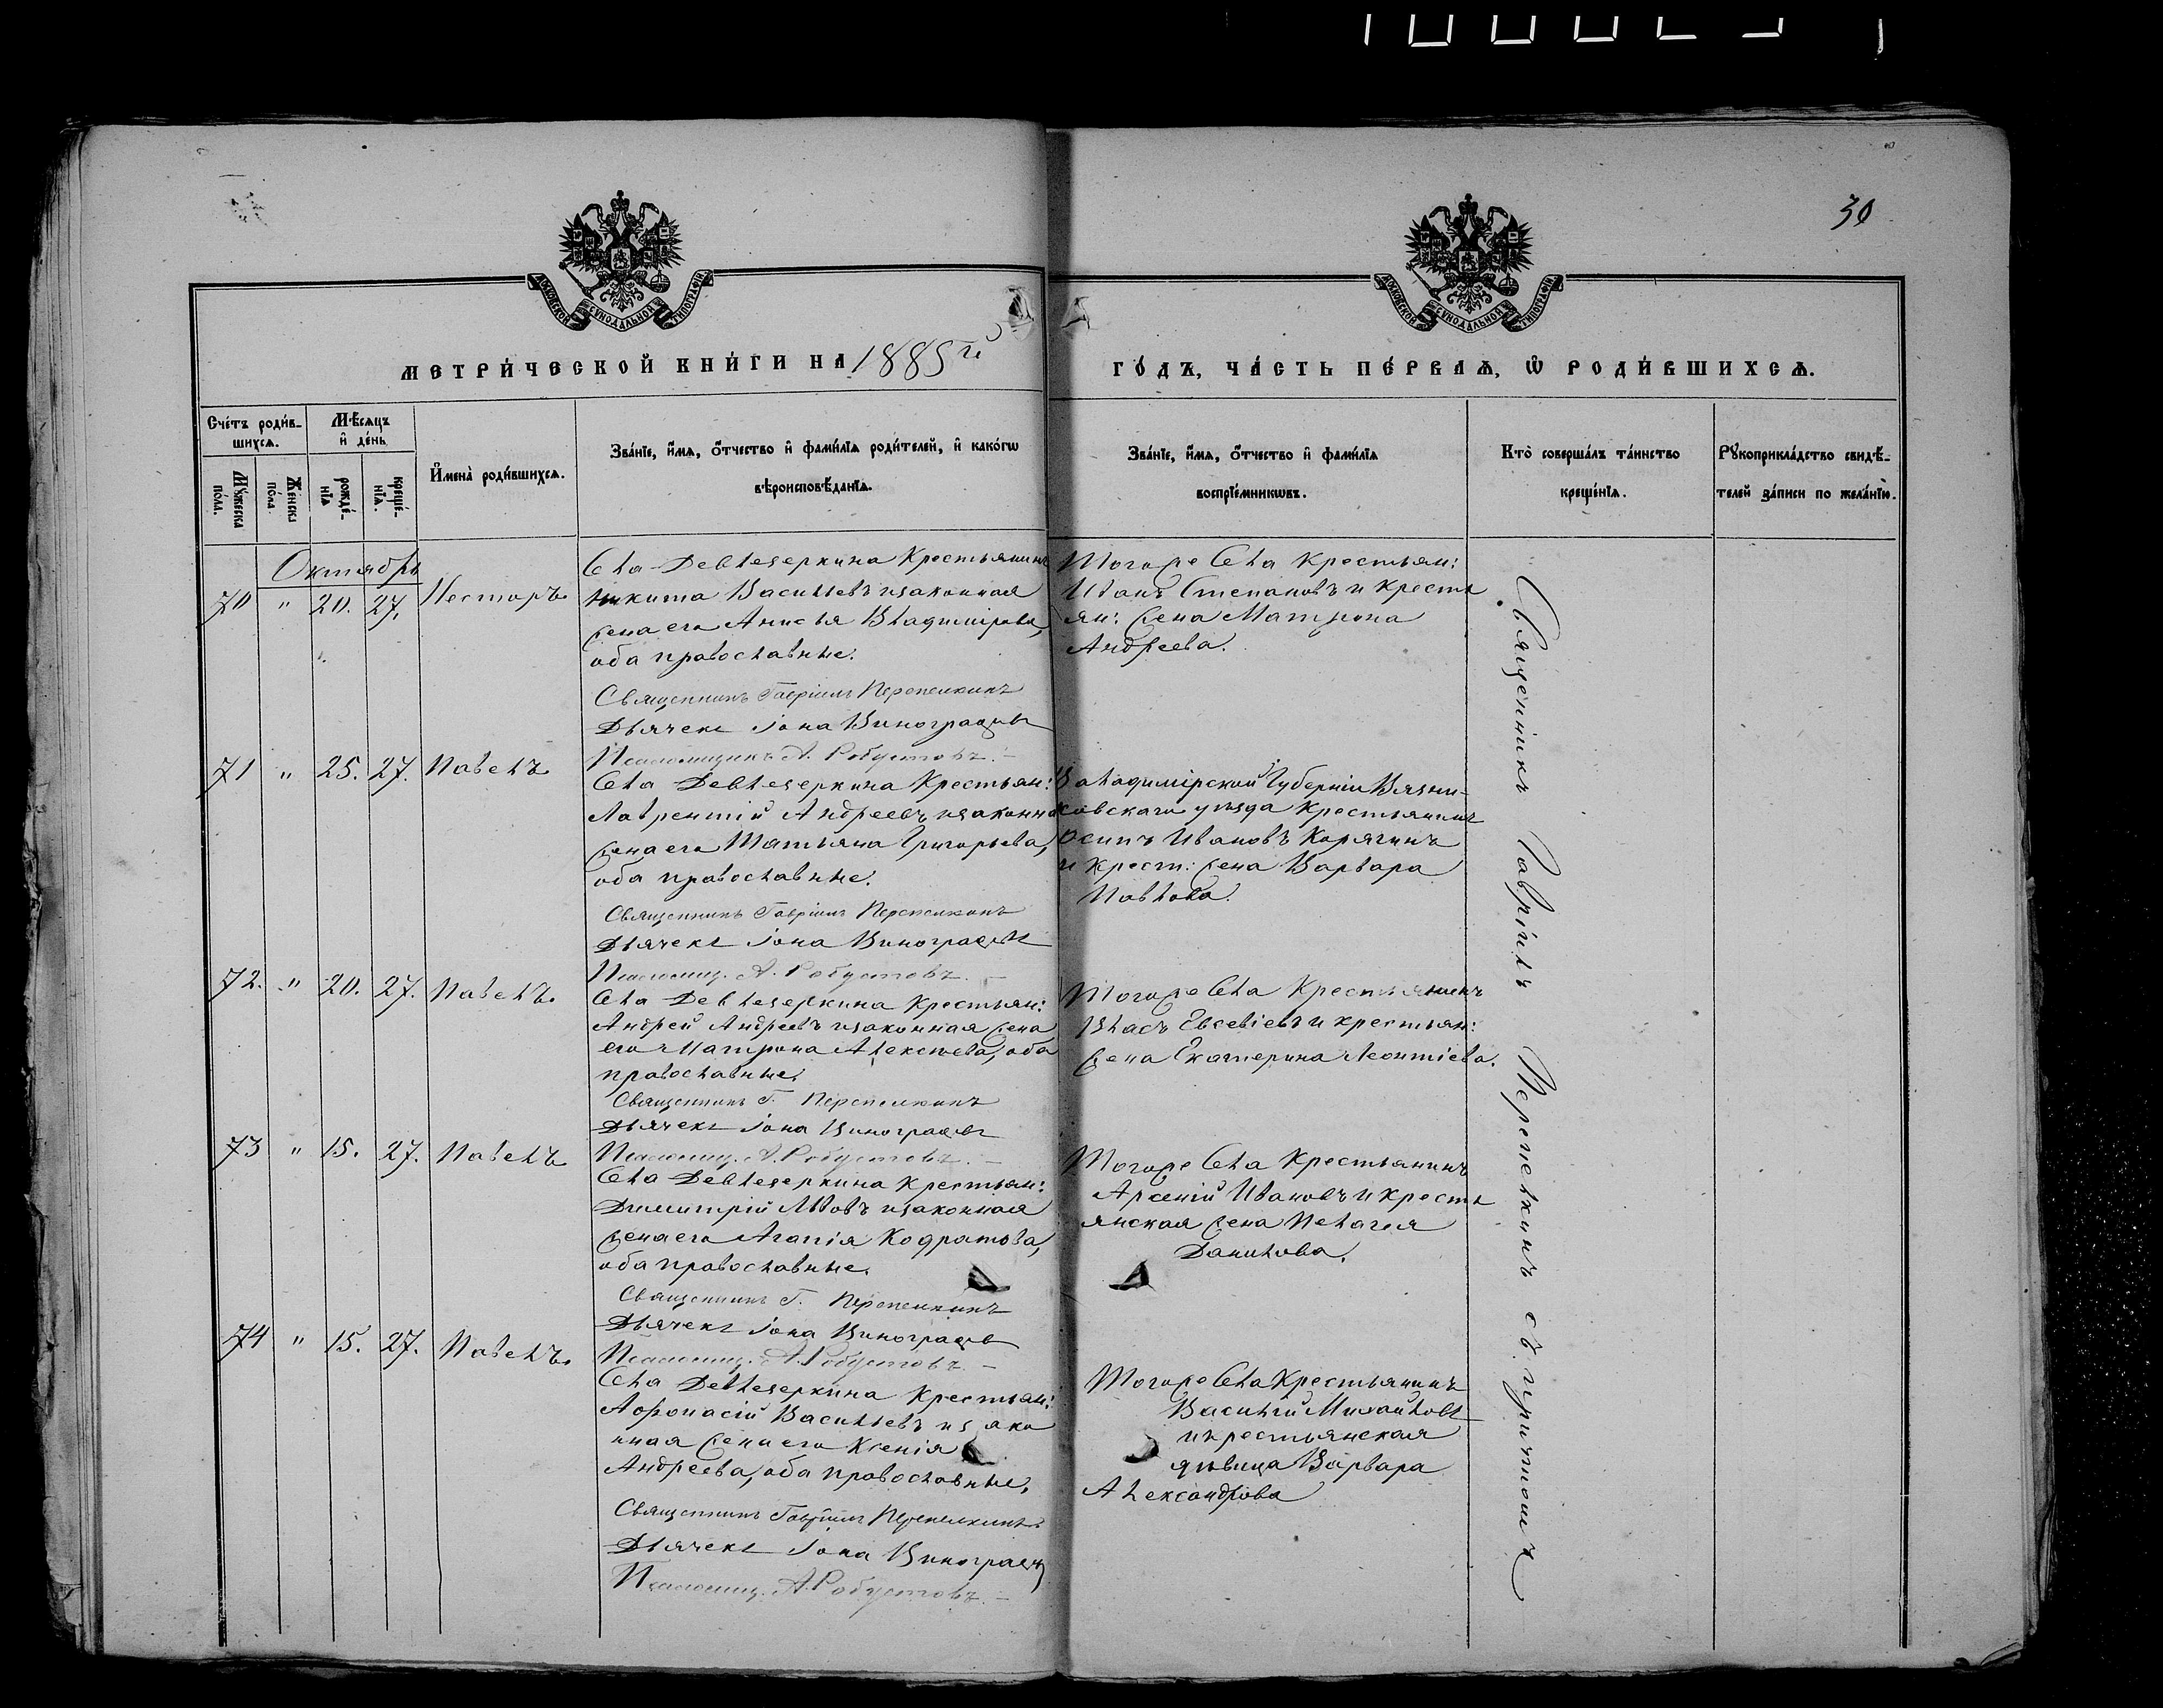 30
МОСКОВСКОЙ СѴНОДАЛЬНОЙ ТИПОГРАФІИ
МОСКОВСКОЙ СѴНОДАЛЬНОЙ ТИПОГРАФІИ
МЕТРИ́ЧЕСКОЙ КНИ́ГИ НА 1885й
ГО́ДЪ, ЧА́СТЬ ПЕ́РВАѦ, Ѡ҆ РОДИ́ВШИХСѦ.
Сче́тъ роди́вшихсѧ.
Мꙋ́жеска по́ла.
Же́нска по́ла.
Мѣ́сѧцъ и҆ де́нь
рожде́нїѧ
креще́нїѧ.
И҆мена̀ роди́вшихсѧ.
Зва́нїе, и҆́мѧ, ѻ҆́тчество и҆ фами́лїѧ роди́телей, и҆ како́гѡ
вѣроисповѣ́данїѧ.
Зва́нїе, и҆́мѧ, ѻ҆́тчество и҆ фами́лїѧ
воспрїе́мникѡвъ.
Кто̀ соверша́лъ та́инство
креще́нїѧ.
Рꙋкоприкла́дство свидѣ́-
телей за́писи по жела́нїю.
Октябрь
70 " 20. 27. Несторъ
Села Девлезеркина Крестьянинъ
Никита Васильевъ изаконная
жена его Анисья Владимірова,
оба православные.
Священникъ Гавріилъ Перепелкинъ
Дьячекъ Іона Виноградовъ
Псаломщикъ А. Робустовъ. –
Тогоже Села Крестьян:
Иванъ Степановъ и Кресть
ян: жена Матрона
Андреева.
71 " 25. 27. Павелъ
Села Девлезеркина Крестьян:
Лаврентій Андреевъ изаконная
жена его Татьяна Григорьева,
оба православные.
Священникъ Гавріилъ Перепелкинъ
Дьячекъ Іона Виноградовъ
Псаломщ. А. Робустовъ. –
Владимірской Губерніи Вязни-
ковскаго уѣзда Крестьянинъ
Осипъ Ивановъ Корягинъ
и Крест: жена Варвара
Павлова.
72. " 20. 27. Павелъ.
Села Девлезеркина Крестьян:
Андрей Андреевъ изаконная жена
его Матрона Алексѣева, оба
православные.
Священникъ Г. Перепелкинъ
Дьячекъ Іона Виноградовъ
Псаломщ. А. Робустовъ. –
Тогоже Села Крестьянинъ
Власъ Евсевіевъ и крестьян:
жена Екатерина Леонтіева.
73 " 15. 27. Павелъ
Села Девлезеркина Крестьян:
Димитрій Львовъ изаконная
жена его Агапія Кодратова,
оба православные.
Священникъ Г. Перепелкинъ
Дьячекъ Іона Виноградовъ
Псаломщ. А. Робустовъ. –
Тогоже Села Крестьянинъ
Арсеній Ивановъ и Кресть
янская жена Пелагея
Данилова.
74 " 15. 27. Павелъ.
Села Девлезеркина Крестьян:
Афонасій Васильевъ из ако
нная жена его Ксенія
Андреева, оба православные,
Священникъ Гавріилъ Перепелкинъ.
Дьячекъ Іона Виноградовъ
Псаломщ. А. Робустовъ. –
Тогоже Села Крестьянинъ
Василій Михайловъ
и крестьянская
дѣвица Варвара
Александрова
Священникъ Гавріилъ Перепелкинъ съ причтомъ